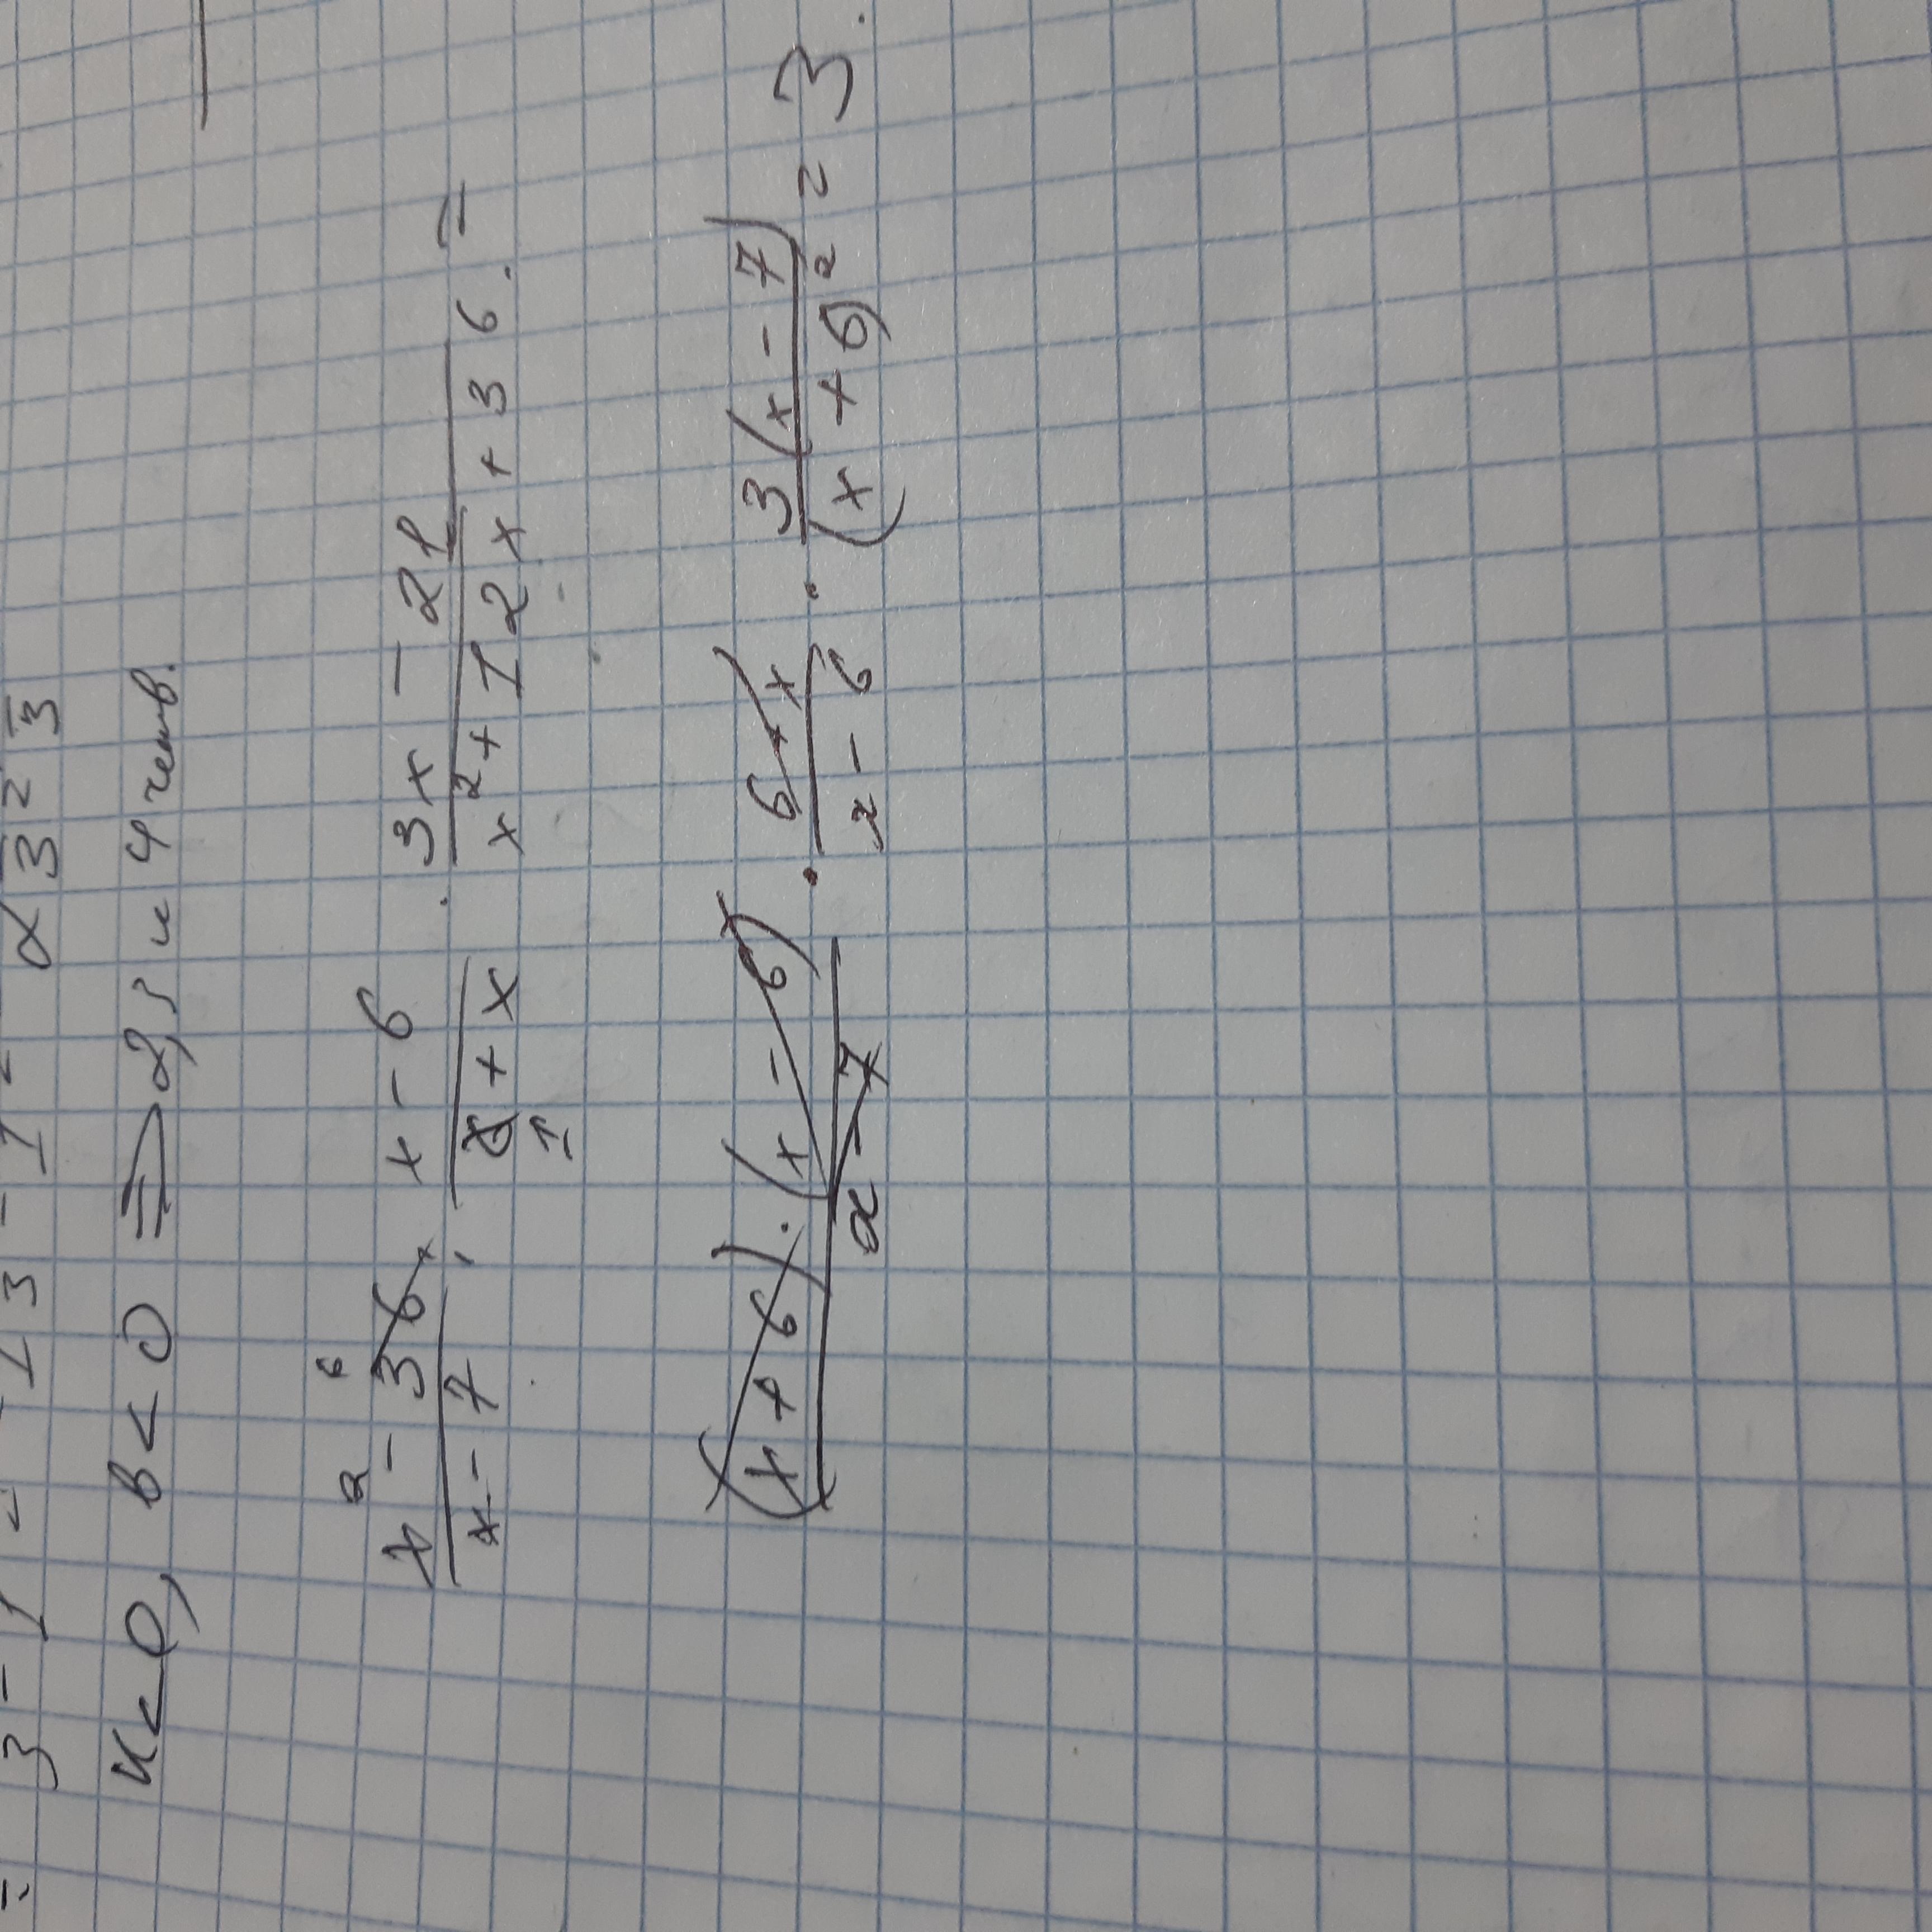 к<0, в<0 ⇒ 2, 3 и 4 четв.
(x² - 36)/(x - 7) : (x - 6)/(6 + x) · (3x - 21)/(x² + 12x + 36) =
((x + 6) · (x - 6))/(x - 7) · (6 + x)/(x - 6) · (3(x - 7))/((x + 6)²) = 3.